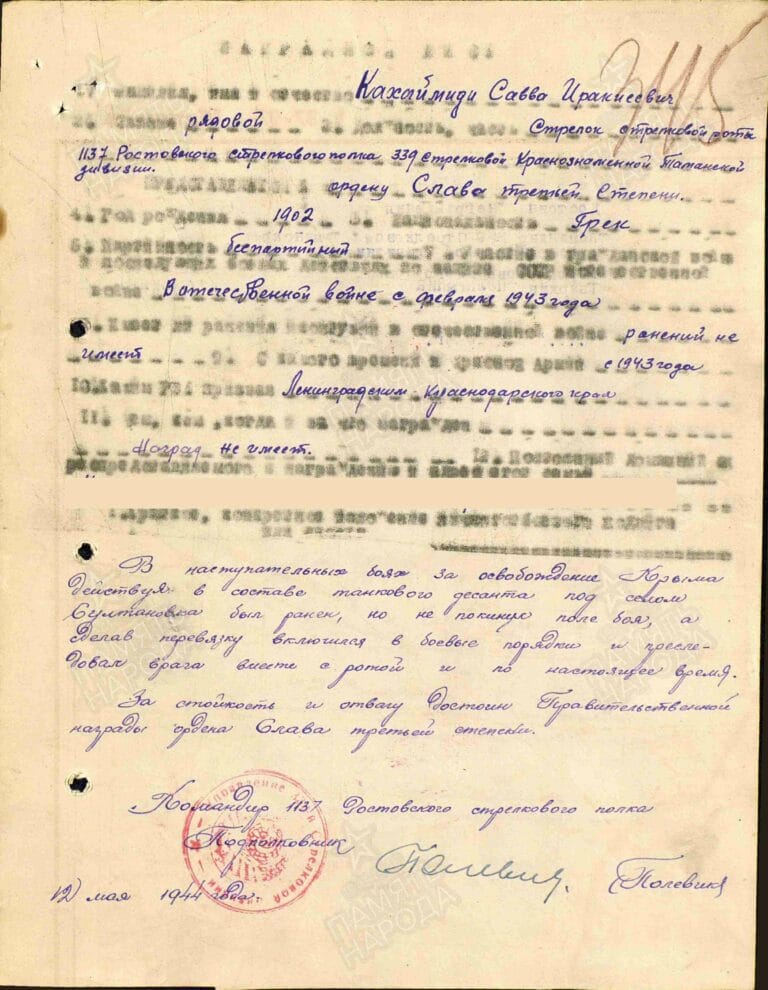 НАГРАДНОЙ ЛИСТ
3115
1. Фамилия, имя и отчество Кахаймиди Савва Иракиевич
2. Звание рядовой 3. Должность, часть Стрелок стрелковой роты
1137 Ростовского стрелкового полка 339 стрелковой Краснознаменной Таманской
дивизии.
ПРЕДСТАВЛЯЕТСЯ К ордену Слава третьей Степени.
4. Год рождения 1902 5. Национальность Грек
6. Партийность беспартийный 7. Участие в гражданской войне
и последующих боевых действиях по защите СССР и отечественной
войне В отечественной войне с февраля 1943 года
8. Имеет ли ранения и контузии в отечественной войне ранений не
имеет 9. С какого времени в Красной Армии с 1943 года
10. Каким РВК призван Ленинградским Краснодарского края
11. чем, когда и за что награжден
Наград не имеет.
12. Постоянный домашний
представляемого к награждению и адрес его семьи
конкретное изложение личного боевого подвига
или заслуг
В наступательных боях за освобождение Крыма
действуя в составе танкового десанта под селом
Султановка был ранен, но не покинул поле боя, а
сделав перевязку включился в боевые порядки и пресле-
довал врага вместе с ротой и по настоящее время.
За стойкость и отвагу Достоин Правительственной
награды ордена Слава третьей степени.
Командир 1137 Ростовского стрелкового полка
Подполковник (Полевик)
12 мая 1944 года.
ПАМЯТЬ НАРОДА